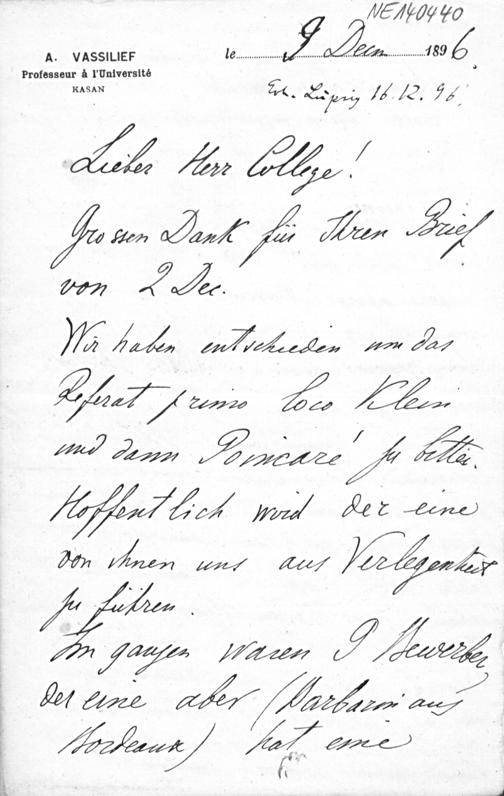 NE140440
A. VASSILIEF
Professeur à l'Université
KASAN
le 9 Decm 1896.
Erh. Leipzig 16.12.96.
Lieber Herr College!
Grossen Dank für Ihren Brief
von 2 Dec.
Wir haben entschieden um das
Referat primo loco Klein
und dann Poincaré zu bitten.
Hoffentlich wird der eine
von ihnen uns aus Verlegenheit
zu führen.
Im ganzen waren 9 Bewerber,
der eine aber (Barbarin aus
Bordeaux) hat eine